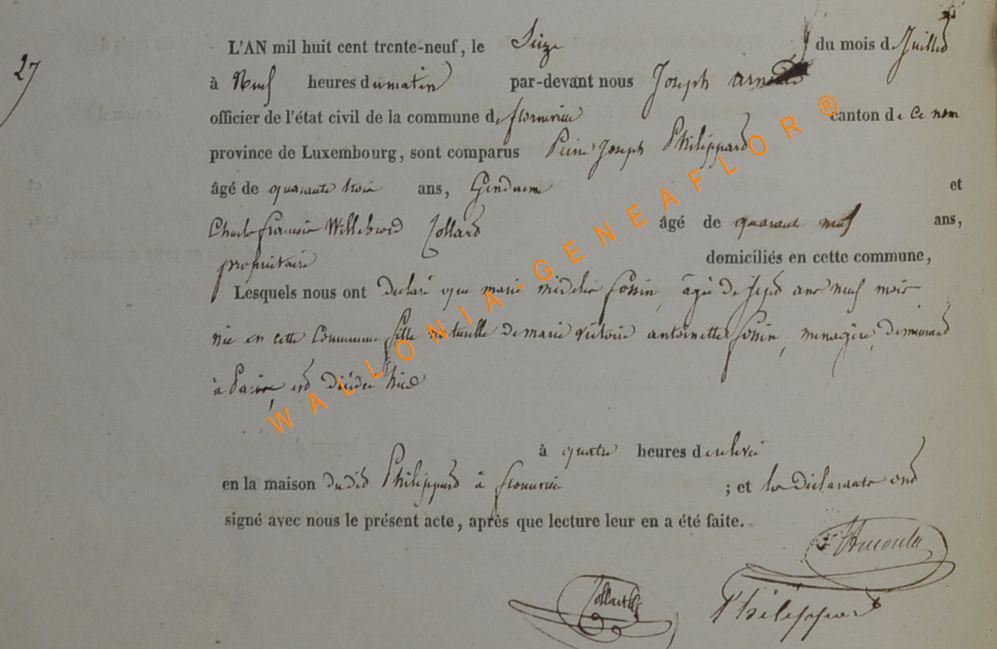 27
L'AN mil huit cent trente-neuf, le Seize du mois de Juillet
à Neuf heures du matin par-devant nous Joseph Arnould
officier de l'état civil de la commune de florenville canton de ce nom
province de Luxembourg, sont comparus Pierre Joseph Philippard
âgé de quarante trois ans, Gendarme et
Charles françois Willebrord Collard âgé de quarante neuf ans,
propriétaire domiciliés en cette commune,
Lesquels nous ont déclaré que marie fossin, âgée de ans neuf mois
née en cette Commune fille naturelle de marie victoire antoinette fossin, menagère, demeurant
à est décédée hier
à quatre heures de relevée
en la maison dudit Philippard à florenville ; et les déclarants ont
signé avec nous le présent acte, après que lecture leur en a été faite.
Arnould
Collard Philippard
WALLONIA-GENEAFLOR ®